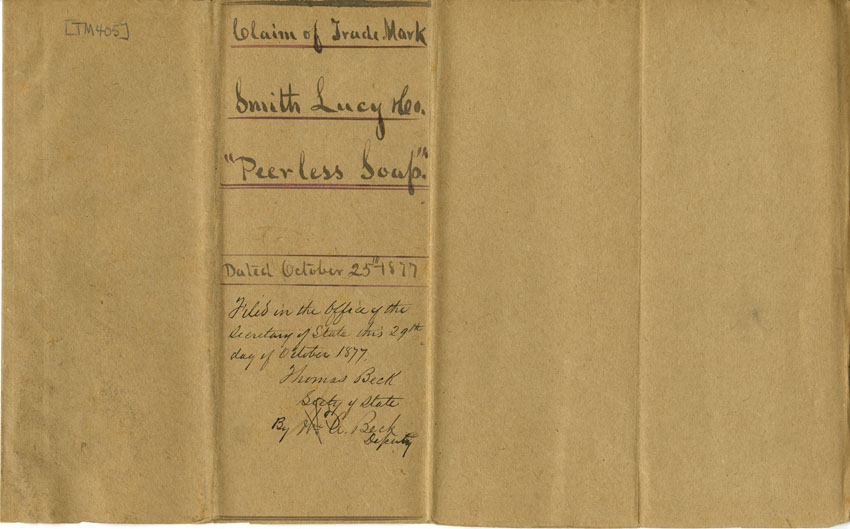 [TM405]
Claim of Trade Mark
Smith Lucy & Co.
"Peerless Soap."
Dated October 25th 1877
Filed in the Office of the
Secretary of State this 29th
day of October 1877.
Thomas Beck
Secty of State
By A. Beck
Deputy